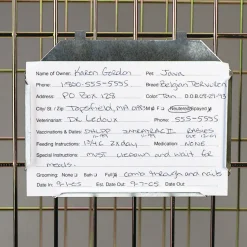 Name of Owner: Karen Gordon Pet Java
Phone 1-800-555-5555 Breed Belgian Tervuren
Address PO Box 128 Color Tan D.O.B.
City St / Zip Topsfield, MA M F Neutered Spayed
Veterinarian: Dr Ledoux Phone 555-5555
Vaccinations & Dates: DHLPP RABIES
Feeding Instructions: 2x day Medication NONE
Special Instructions: must lie down and wait for
meals.
Grooming: None Bath Full comb through and nails
Date In: 9-1-05 Est. Date Out: 9-7-05 Date Out: